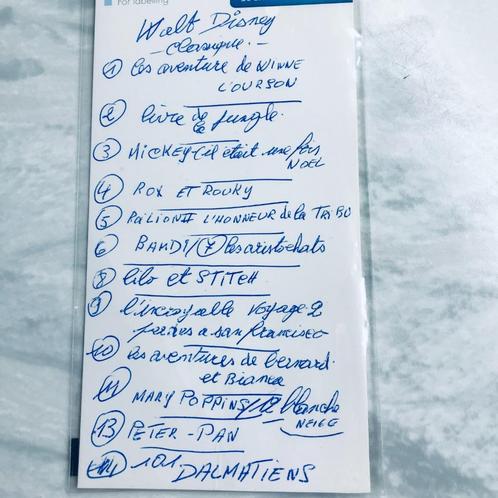 For labelling
Walt Disney
- Classique. -
① les aventure de WINNE
L'OURSON
② livre de
le jungle.
③ MICKEY (il était une fois
NOEL
④ ROX ET ROUKY
⑤ L'HONNEUR de la TRIBU
⑥ BAMBI / ⑦ les aristochats
⑧ lilo et STITCH
⑨ l'incroyable voyage 2
a san francisco
⑩ les aventures de bernard.
et Bianca
⑪ MARY POPPINS / 12 blanche
NEIGE
⑬ PETER-PAN
⑭ 101 DALMATIENS